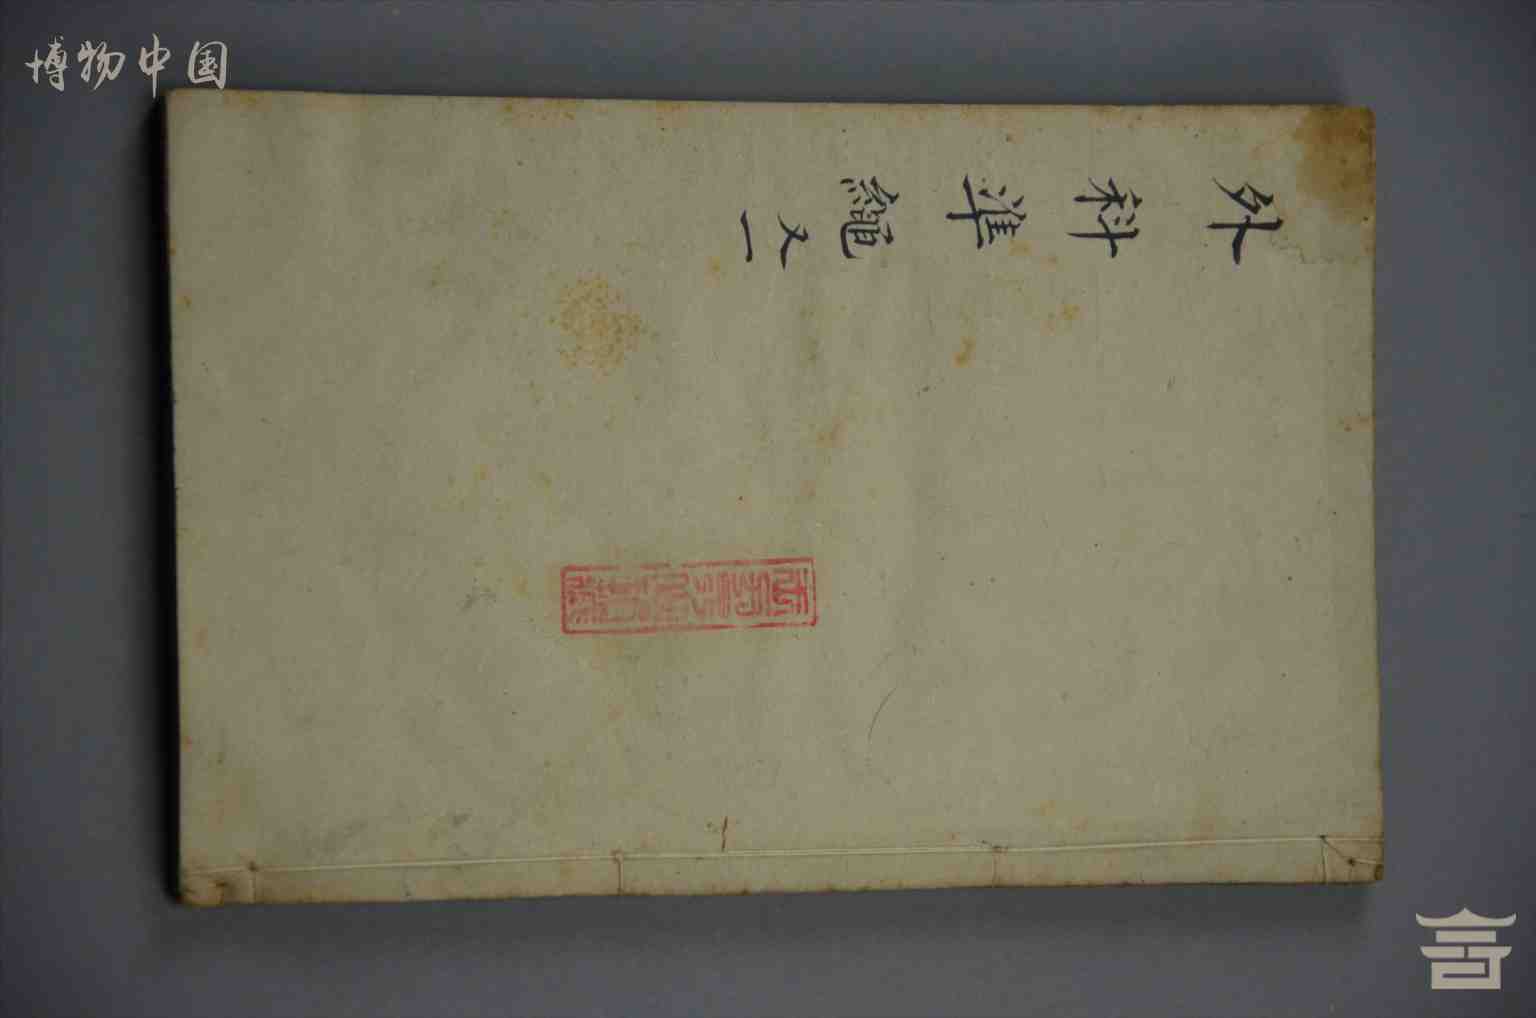 博物中国
外科準繩又一